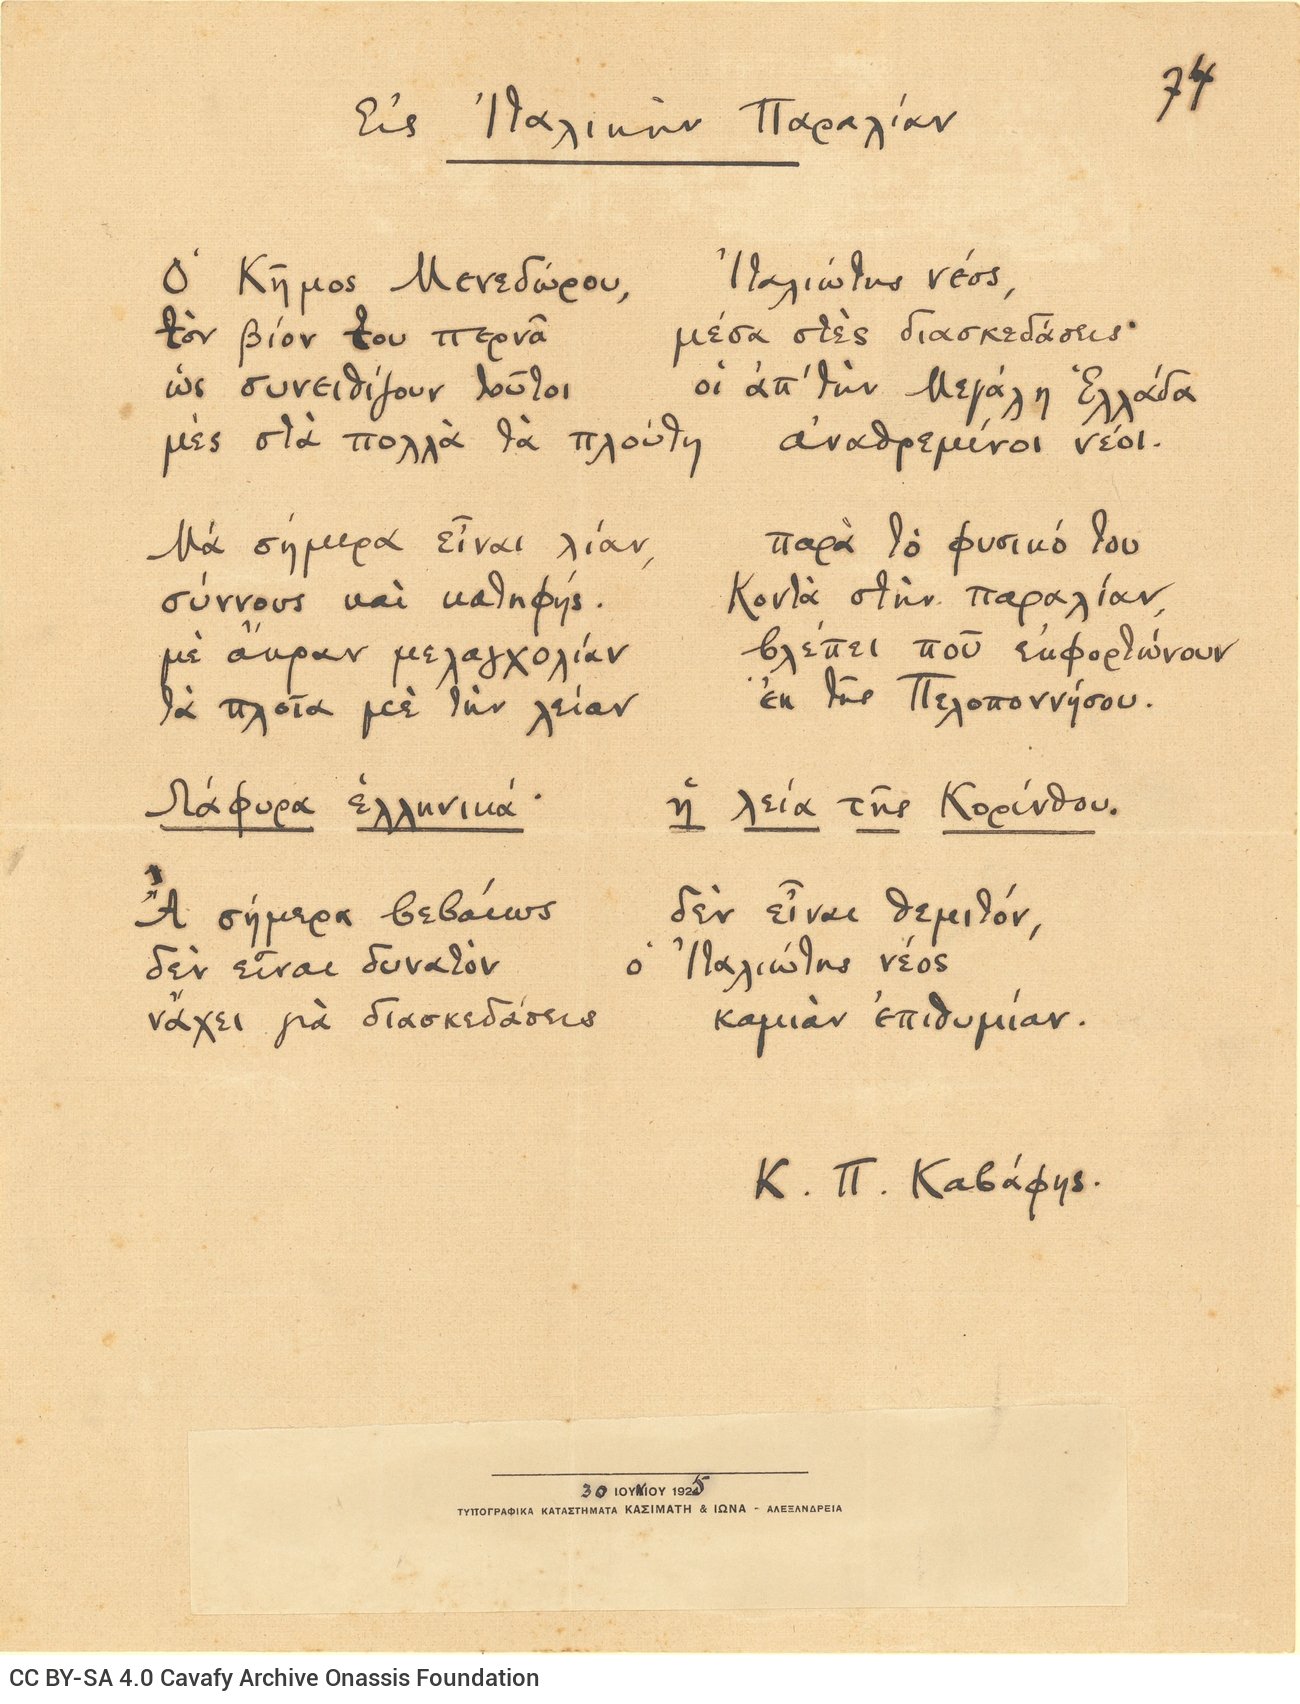 74
Εἰς Ἰταλικὴν Παραλίαν
Ὁ Κῆμος Μενεδώρου, Ἰταλιώτης νέος,
τὸν βίον του περνᾶ μέσα στὲς διασκεδάσεις·
ὡς συνειθίζουν τοῦτοι οἱ ἀπ' τὴν Μεγάλη Ἑλλάδα
μὲς στὰ πολλὰ τὰ πλούτη ἀναθρεμένοι νέοι.
Μὰ σήμερα εἶναι λίαν, παρὰ τὸ φυσικό του
σύννους καὶ κατηφής. Κοντὰ στὴν παραλίαν,
μὲ ἄκραν μελαγχολίαν βλέπει ποῦ ἐκφορτώνουν
τὰ πλοῖα μὲ τὴν λείαν ἐκ τῆς Πελοποννήσου.
Λάφυρα ἑλληνικά· ἡ λεία τῆς Κορίνθου.
Ἆ σήμερα βεβαίως δὲν εἶναι θεμιτόν,
δὲν εἶναι δυνατὸν ὁ Ἰταλιώτης νέος
νἄχει γιὰ διασκεδάσεις καμιὰν ἐπιθυμίαν.
Κ. Π. Καβάφης.
30 ΙΟΥΝΙΟΥ 1925
ΤΥΠΟΓΡΑΦΙΚΑ ΚΑΤΑΣΤΗΜΑΤΑ ΚΑΣΙΜΑΤΗ & ΙΩΝΑ - ΑΛΕΞΑΝΔΡΕΙΑ
CC BY-SA 4.0 Cavafy Archive Onassis Foundation